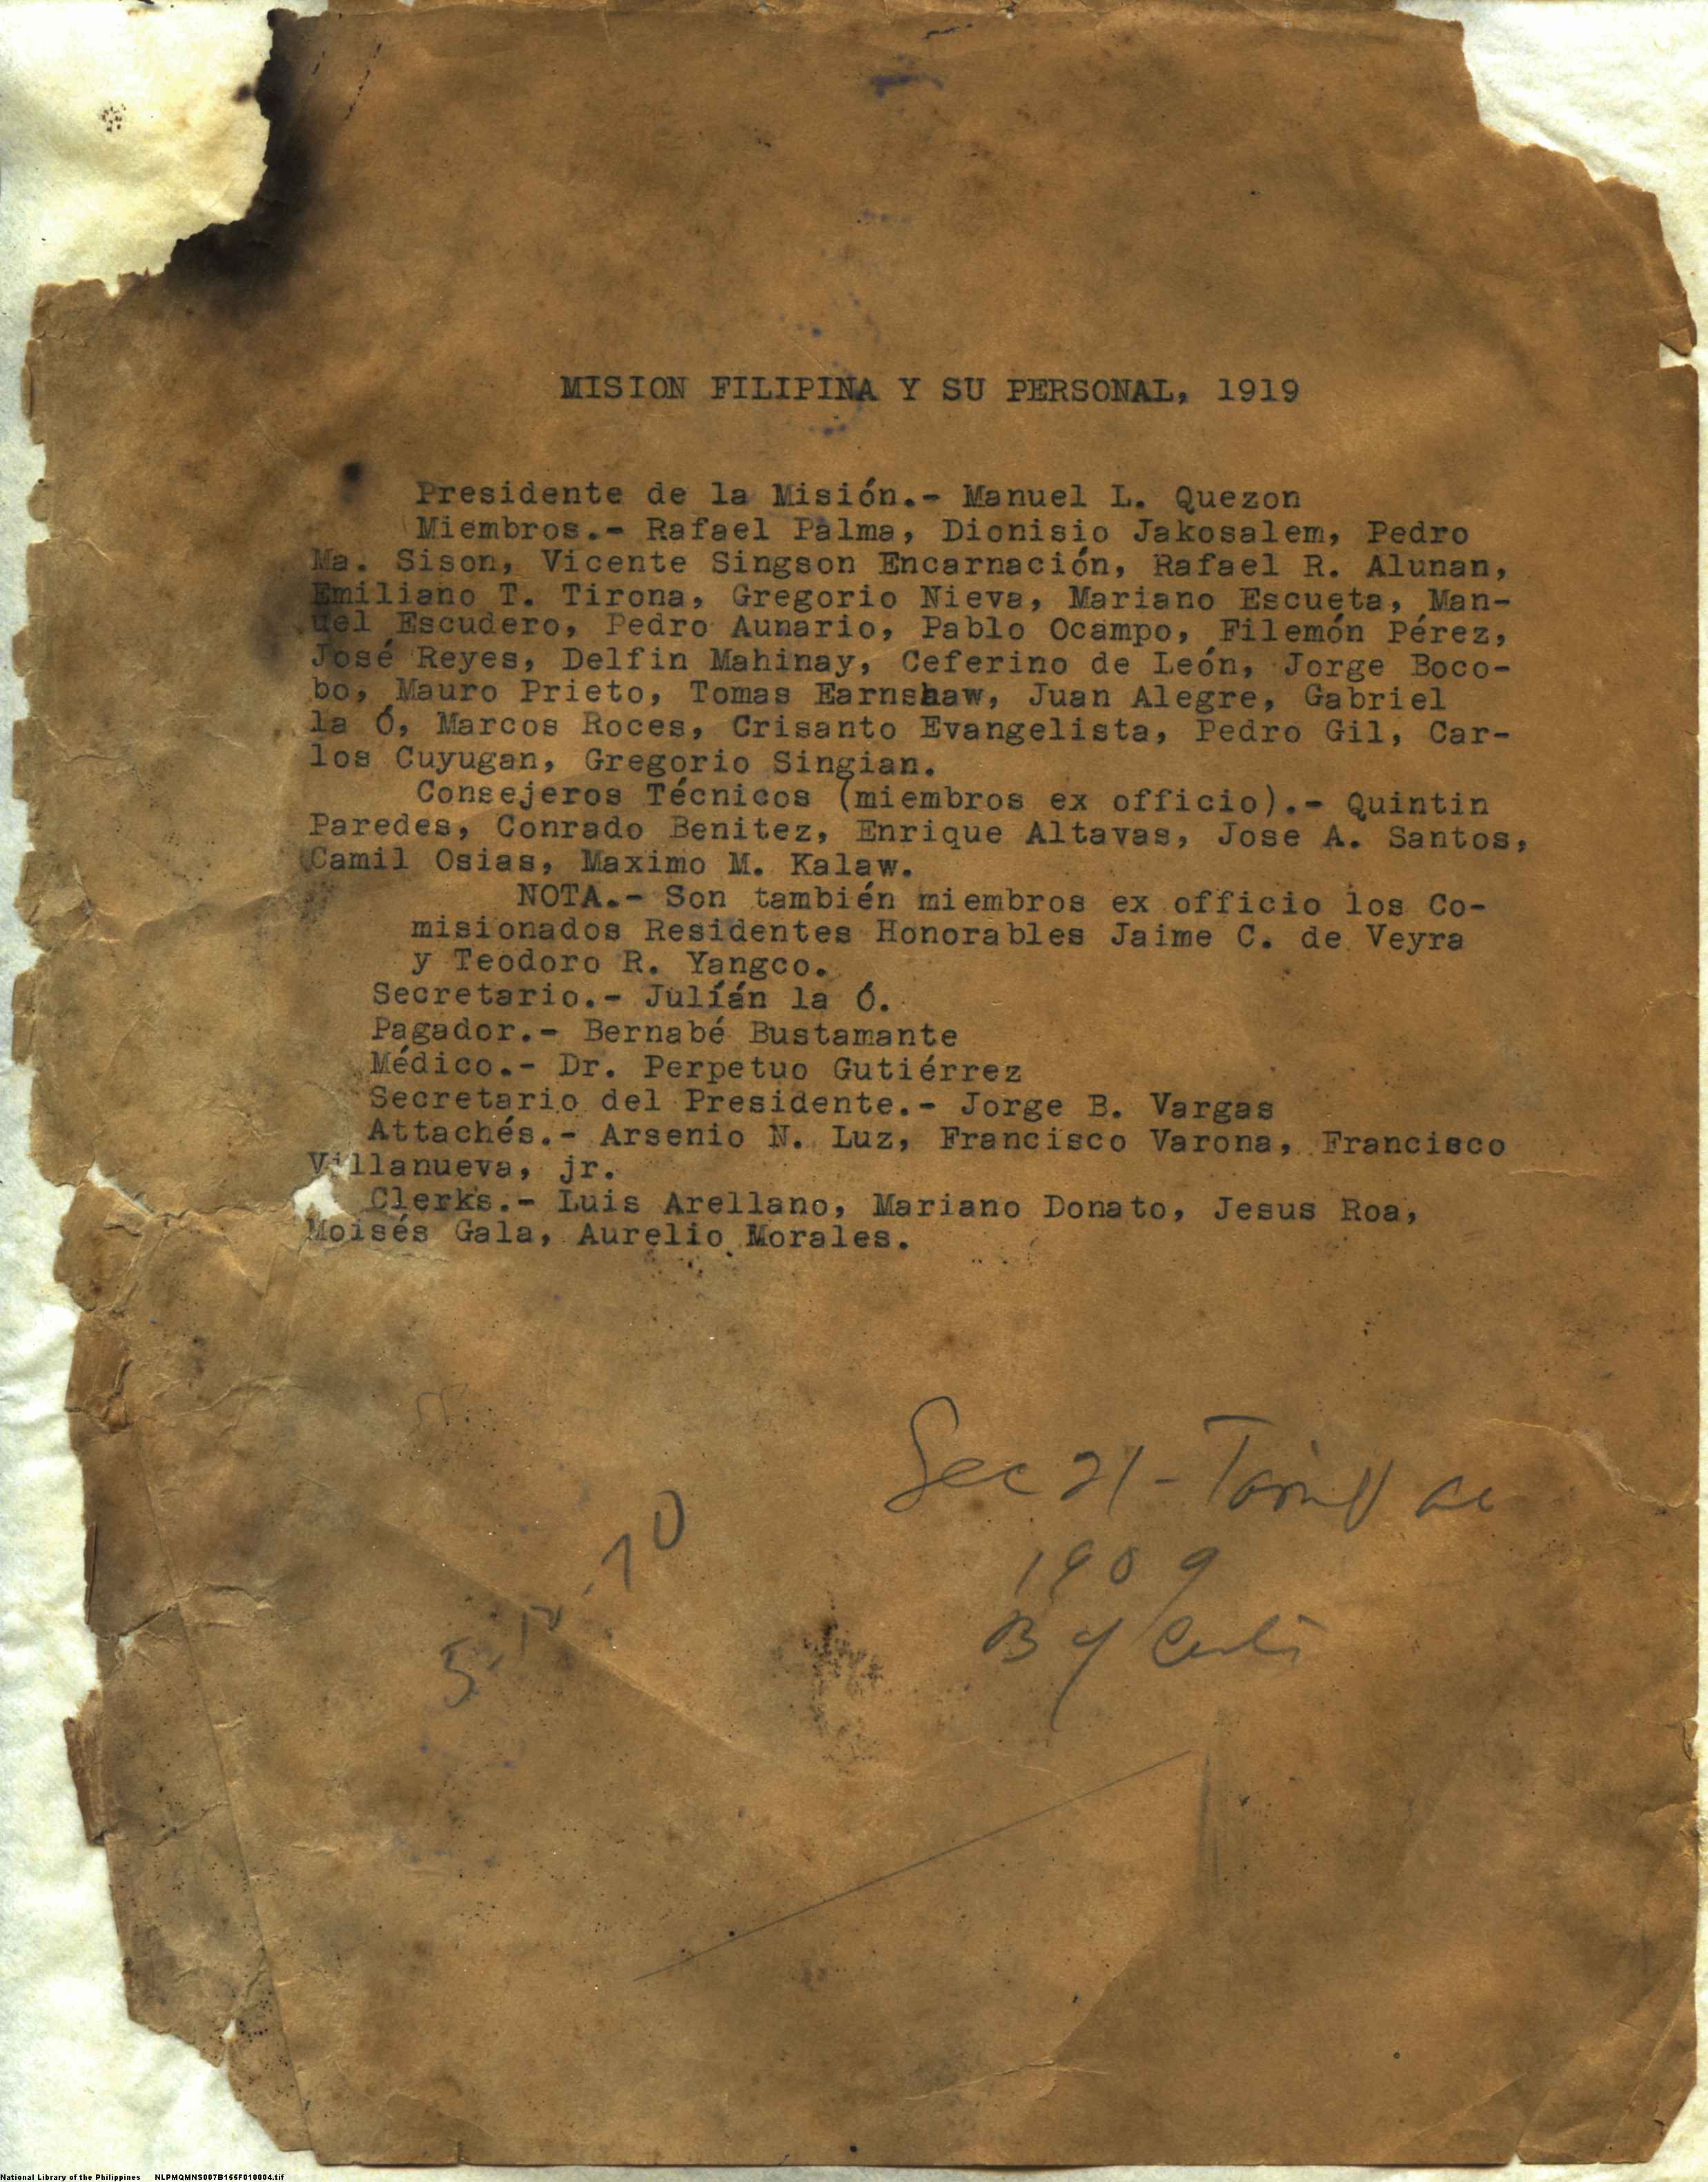 MISION FILIPINA Y SU PERSONAL, 1919
Presidente de la Misión.- Manuel L. Quezon
Miembros.- Rafael Palma, Dionisio Jakosalem, Pedro
Ma. Sison, Vicente Singson Encarnación, Rafael R. Alunan,
Emiliano T. Tirona, Gregorio Nieva, Mariano Escueta, Man-
uel Escudero, Pedro Aunario, Pablo Ocampo, Filemón Pérez,
José Reyes, Delfin Mahinay, Ceferino de León, Jorge Boco-
bo, Mauro Prieto, Tomas Earnshaw, Juan Alegre, Gabriel
la Ó, Marcos Roces, Crisanto Evangelista, Pedro Gil, Car-
los Cuyugan, Gregorio Singian.
Consejeros Técnicos (miembros ex officio).- Quintin
Paredes, Conrado Benitez, Enrique Altavas, Jose A. Santos,
Camil Osias, Maximo M. Kalaw.
NOTA.- Son también miembros ex officio los Co-
misionados Residentes Honorables Jaime C. de Veyra
y Teodoro R. Yangco.
Secretario.- Julián la Ó.
Pagador.- Bernabé Bustamante
Médico.- Dr. Perpetuo Gutiérrez
Secretario del Presidente.- Jorge B. Vargas
Attachés.- Arsenio N. Luz, Francisco Varona, Francisco
Villanueva, jr.
Clerks.- Luis Arellano, Mariano Donato, Jesus Roa,
Moisés Gala, Aurelio Morales.
Sec 21 - Tariff ac
1909
By
National Library of the Philippines NLPMQMNS007B155F010004.tif